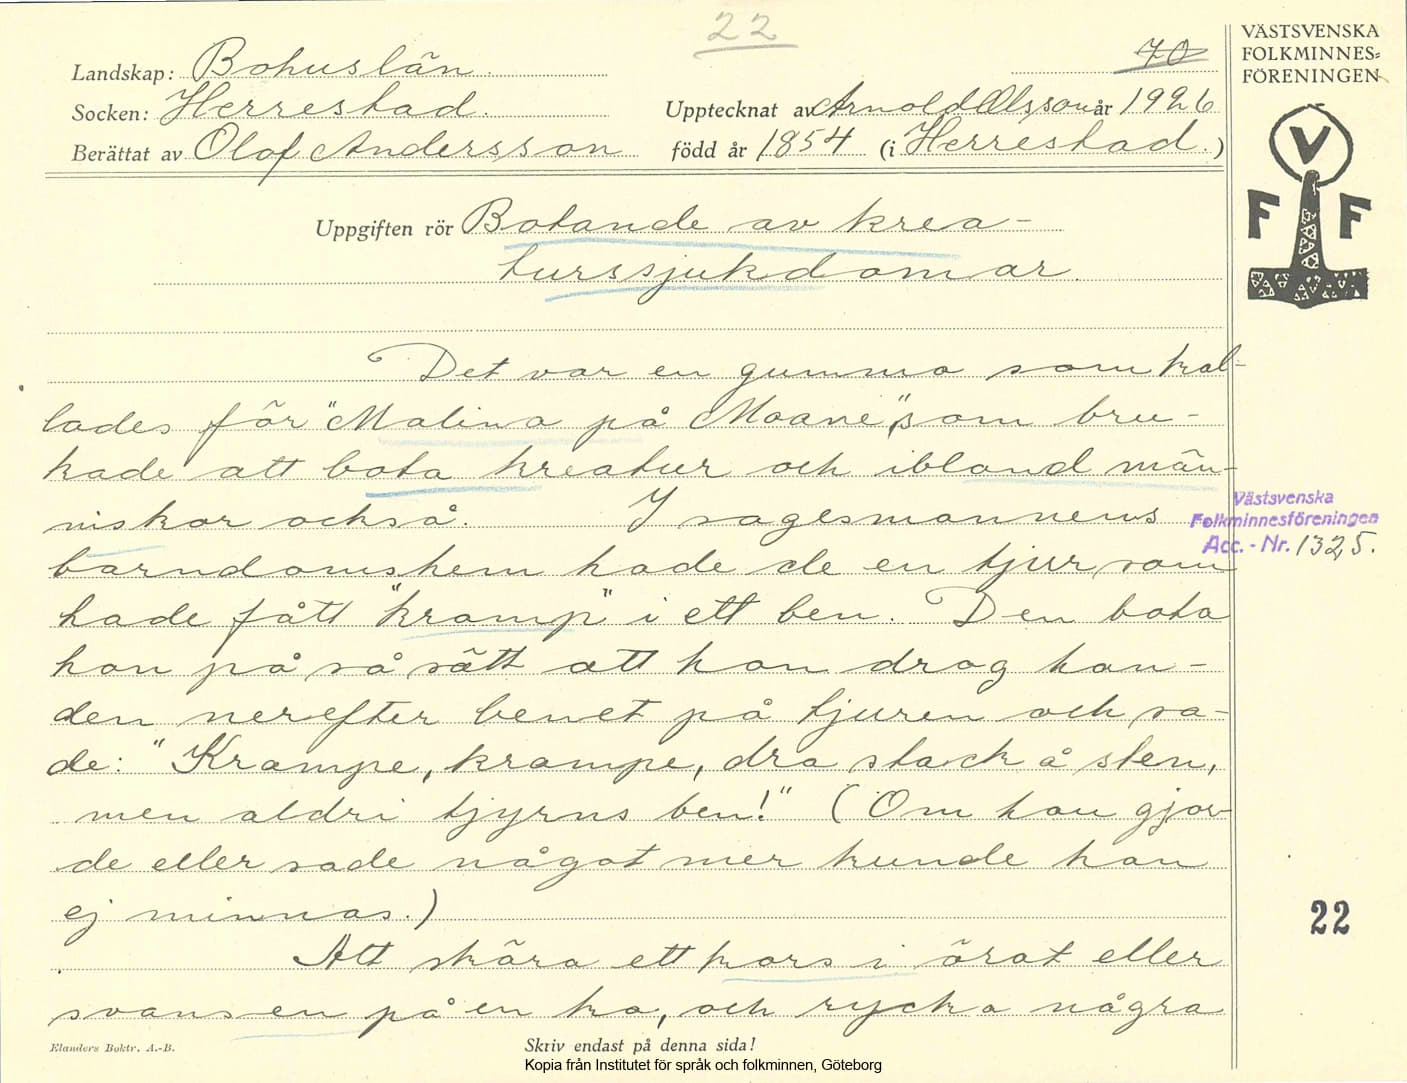 22
70
VÄSTSVENSKA
FOLKMINNES=
FÖRENINGEN
Landskap: Bohuslän.
Socken: Herrestad. Upptecknat av Arnold Olsson år 1926
Berättat av Olof Andersson född år 1854 (i Herrestad.)
V
F F
Uppgiften rör Botande av krea-
turssjukdomar.
Det var en gumma som kal-
lades för "Malina på Moane", som bru-
kade att bota kreatur och ibland män-
niskor också. I sagesmannens
barndomshem hade de en tjur som
hade fått "kramp" i ett ben. Den bota
hon på så sätt att hon drog han-
den nerefter benet på tjuren och sa-
de: "Krampe, krampe, dra stack å sten,
men aldri tjyrns ben!" (Om hon gjor-
de eller sade något mer kunde han
ej minnas.)
Att skära ett kors i örat eller
svansen på en ko, och rycka några
Västsvenska
Folkminnesföreningen
Acc. - Nr. 1325.
22
Elanders Boktr. A.-B.
Skriv endast på denna sida!
Kopia från Institutet för språk och folkminnen, Göteborg